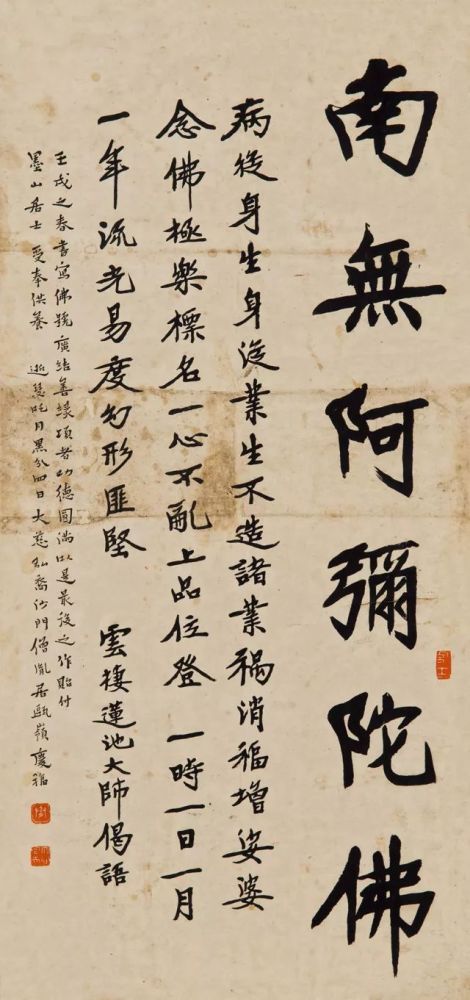 南無阿彌陀佛
病從身生身從業生不造諸業禍消福增娑婆
念佛極樂標名一心不亂上品位登一時一日一月
一年流光易度幻形匪堅 雲棲蓮池大師偈語
壬戌之春書寫佛號廣結善緣頃者功德圓滿以是最後之作貽付
墨山居士 受奉供養 逝瑟吒月黑分四日大慈弘裔沙門僧胤居甌嶺慶福